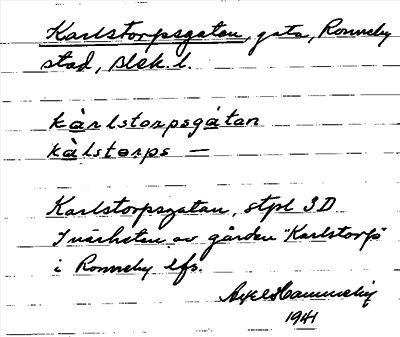 Karlstorpsgatan, gata, Ronneby
stad, Blek. l.
kàrlstorpsgátan
kàlstorps —
Karlstorpsgatan, stpl 3D
I närheten av gården "Karlstorp"
i Ronneby lfs.
Axel Hammneby
1941